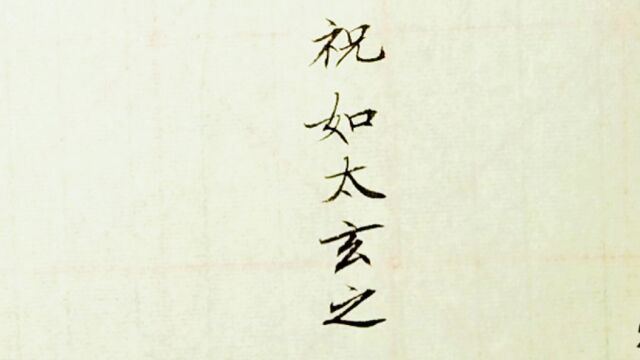 祝如太玄之